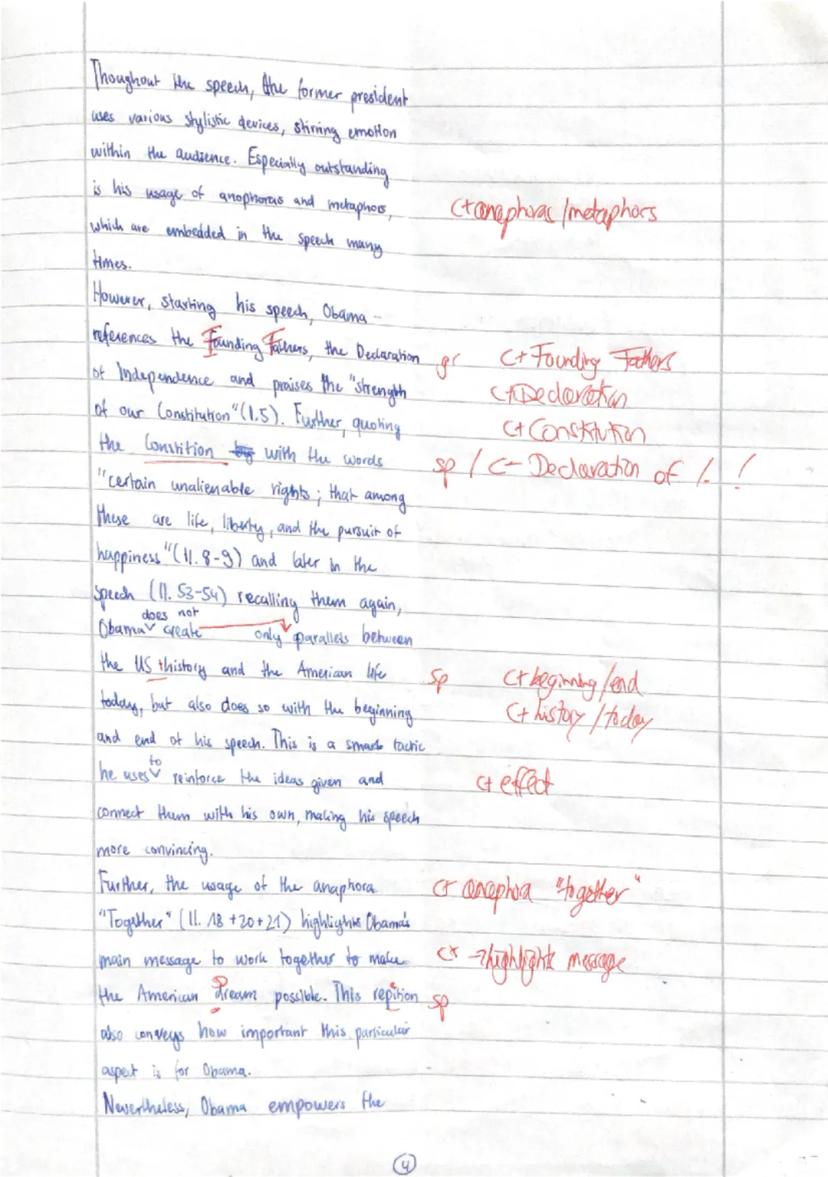 Thoughout the speech, the former president
uses various stylistic devices, stirring emotion
within the audience. Especially outstanding
is his usage of anaphoras and metaphors,
c+ anaphoras/metaphors
which are embedded in the speech many
times.
However, starting his speech, Obama
references the Founding Fathers, the Declaration
gr c+ Founding Fathers
of Independence and praises the "strength
c+ Declaration
of our Constitution" (l.5). Further, quoting
c+ Constitution
the Constition with the words
sp / c- Declaration of I. !
"certain unalienable rights; that among
these are life, liberty, and the pursuit of
happiness" (ll. 8-9) and later in the
speech (ll. 53-54) recalling them again,
Obama does not create only parallels between
the US history and the American life
sp c+ beginning/end
today, but also does so with the beginning
c+ history/today
and end of his speech. This is a smart tactic
he uses to reinforce the ideas given and
c+ effect
connect them with his own, making his speech
more convincing.
Further, the usage of the anaphora
c+ anaphora "together"
"Together" (ll. 18+20+21) highlights Obama's
main message to work together to make
c+ →highlights message
the American dream possible. This repition
sp
sp
also conveys how important this particular
aspect is for Obama.
Nevertheless, Obama empowers the
4